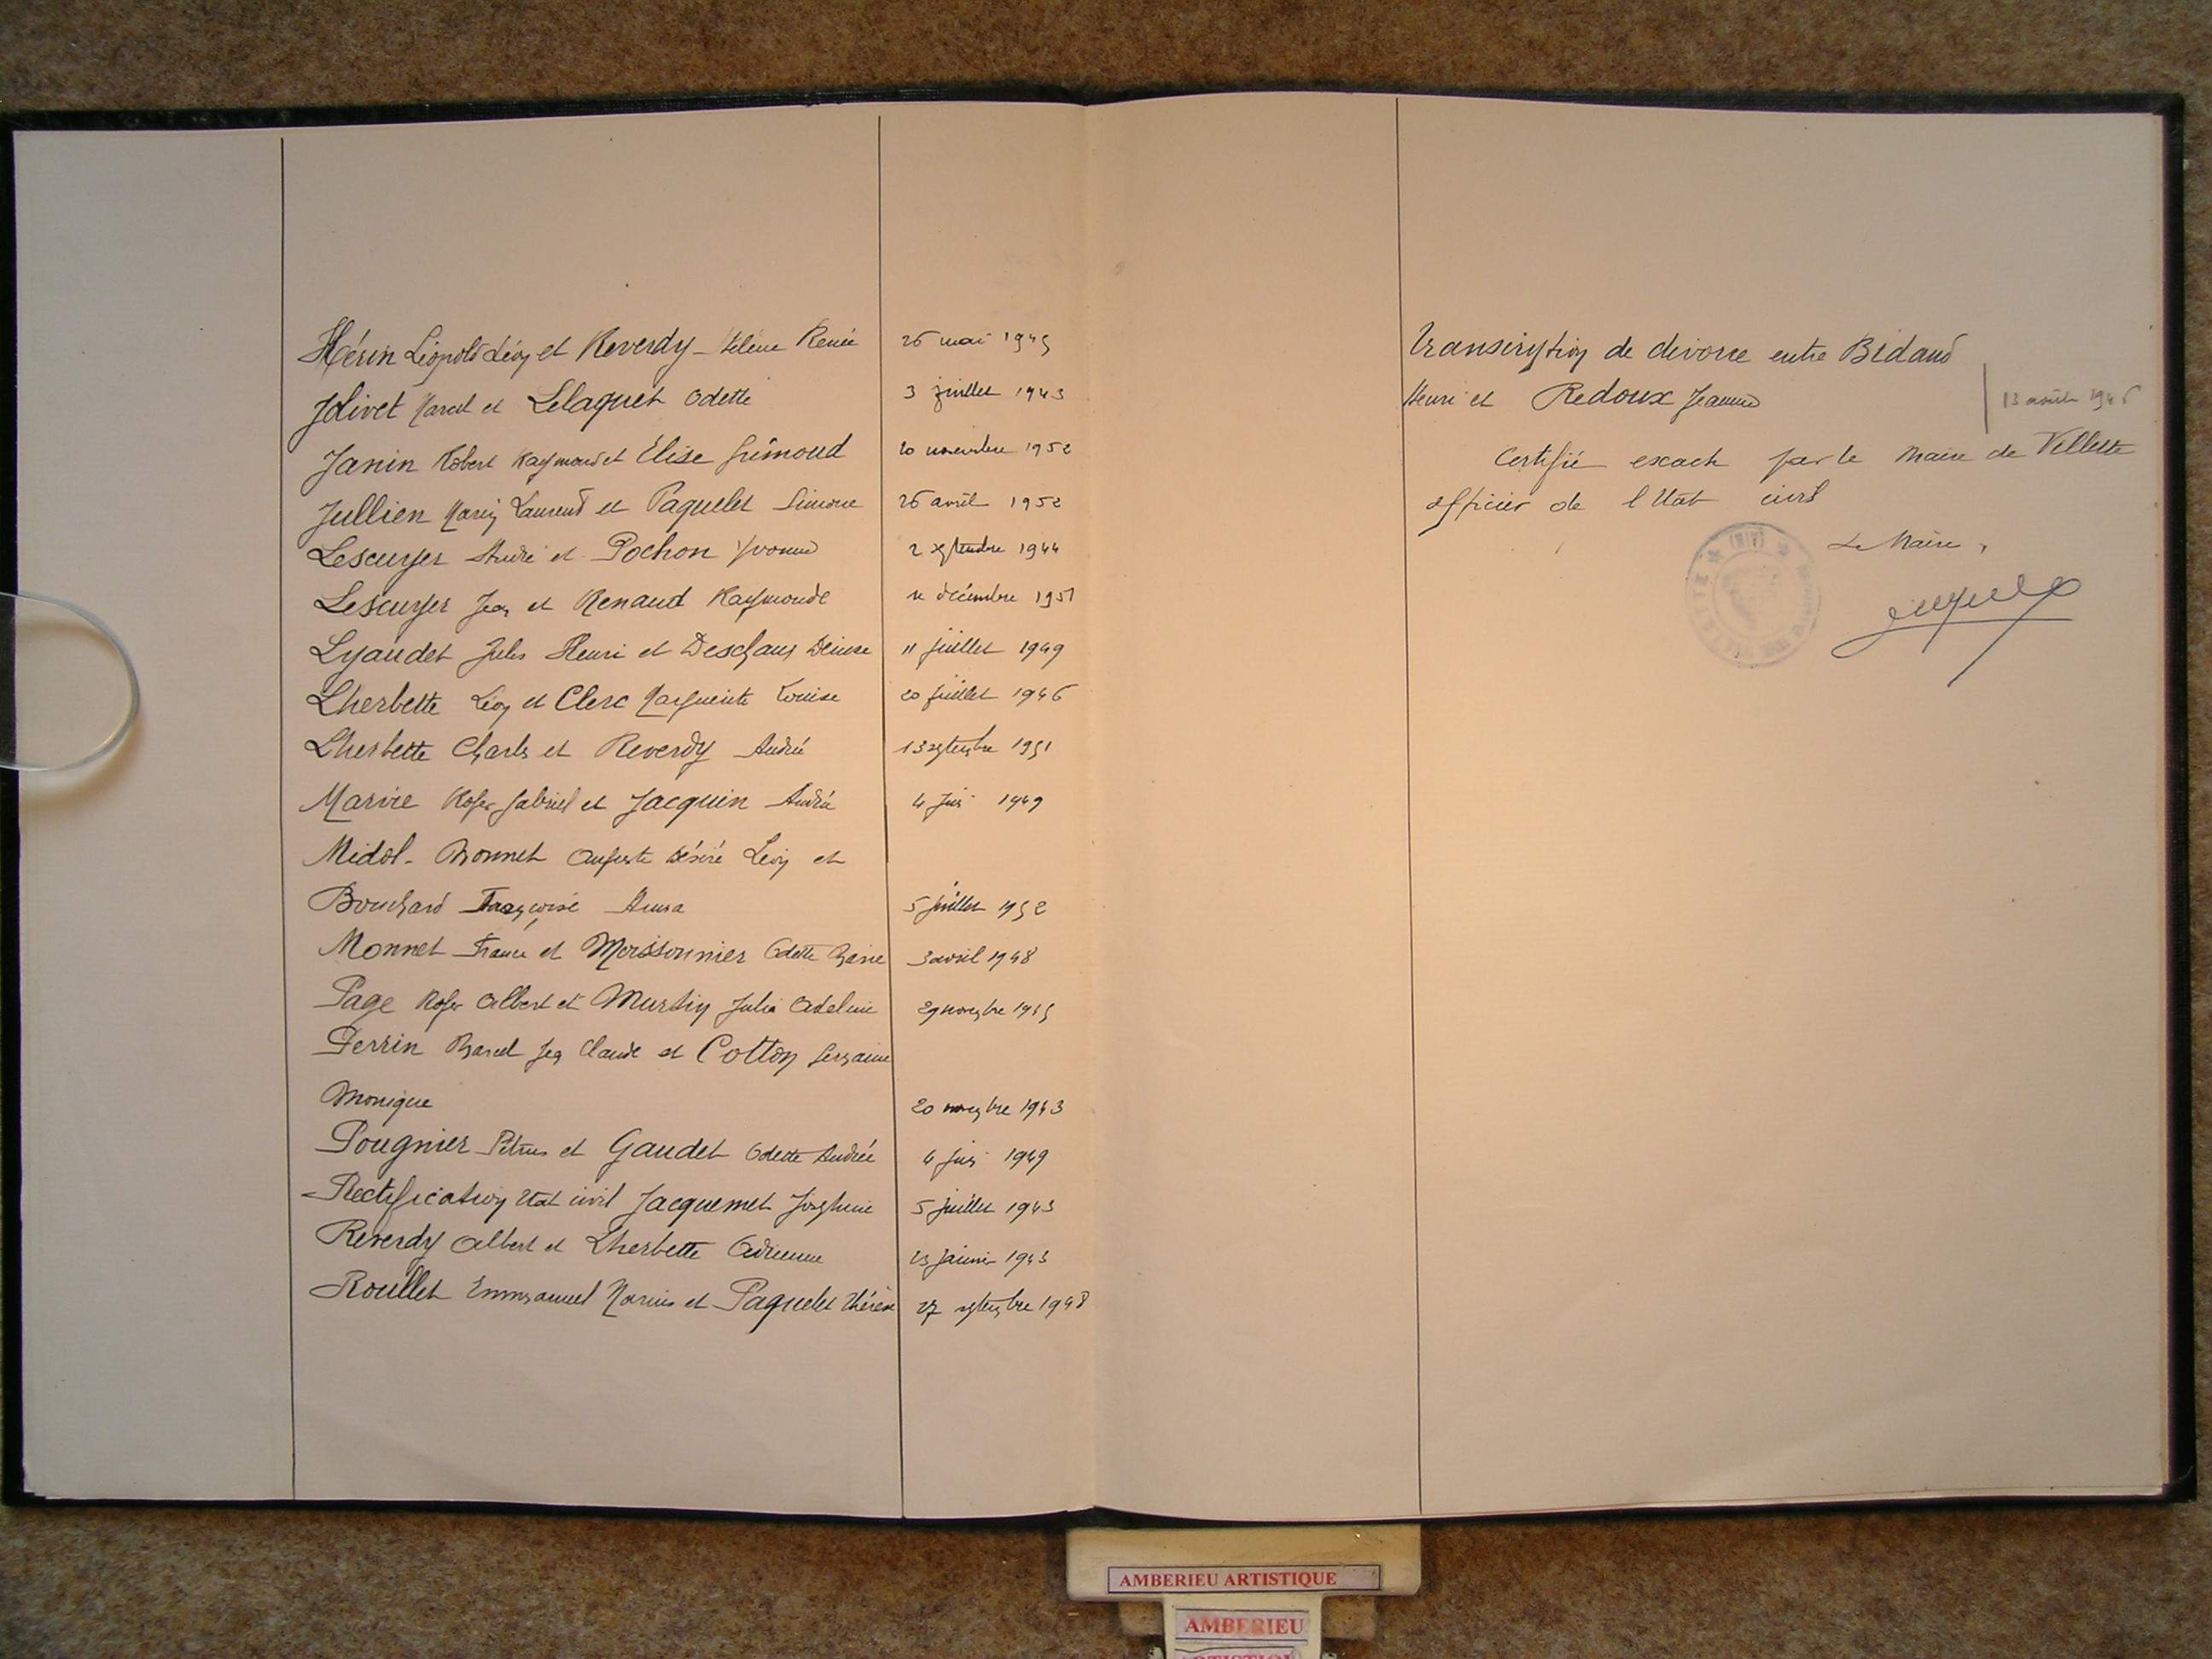 Hérin Léopold Léon et Reverdy Hélène Renée 26 mai 1945
Jolivet Marcel et Lelaquet Odette 3 juillet 1943
Janin Robert Raymond et Elise Grimoud 20 novembre 1952
Jullien Marin Laurent et Paquelet Simone 26 avril 1952
Lescuyer André et Pochon Yvonne 2 septembre 1944
Lescuyer Jean et Renaud Raymonde décembre 1951
Lyaudet Jules Henri et Deschaux Denise 11 juillet 1949
Lherbette Léon et Clerc Marguerite Louise 20 juillet 1946
Lherbette Charles et Reverdy Andrée 13 septembre 1951
Marvie Roger Gabriel et Jacquin Andrée 4 juin 1949
Midol-Monnet Auguste Désiré Léon et
Bouchard Françoise Anna 5 juillet 1952
Monnet Francé et Moissonnier Odette Marie 3 avril 1948
Page Roger Albert et Murtin Julia Adeline 29 novembre 1945
Perrin Marcel Jean Claude et Cotton Germaine
Monique 20 novembre 1943
Pougnier Pétrus et Gaudet Odette Andrée 4 juin 1949
Rectification Etat civil Jacquemet Joséphine 5 juillet 1943
Reverdy Albert et Lherbette Adrienne 23 janvier 1943
Roullet Emmanuel Marius et Paquelet Thérèse 27 septembre 1948
Transcription de divorce entre Bidaud
Henri et Redoux Jeanne 13 août 1946
Certifié exact par le Maire de Villette
officier de l'Etat civil
Le Maire,
AMBERIEU ARTISTIQUE
AMBERIEU